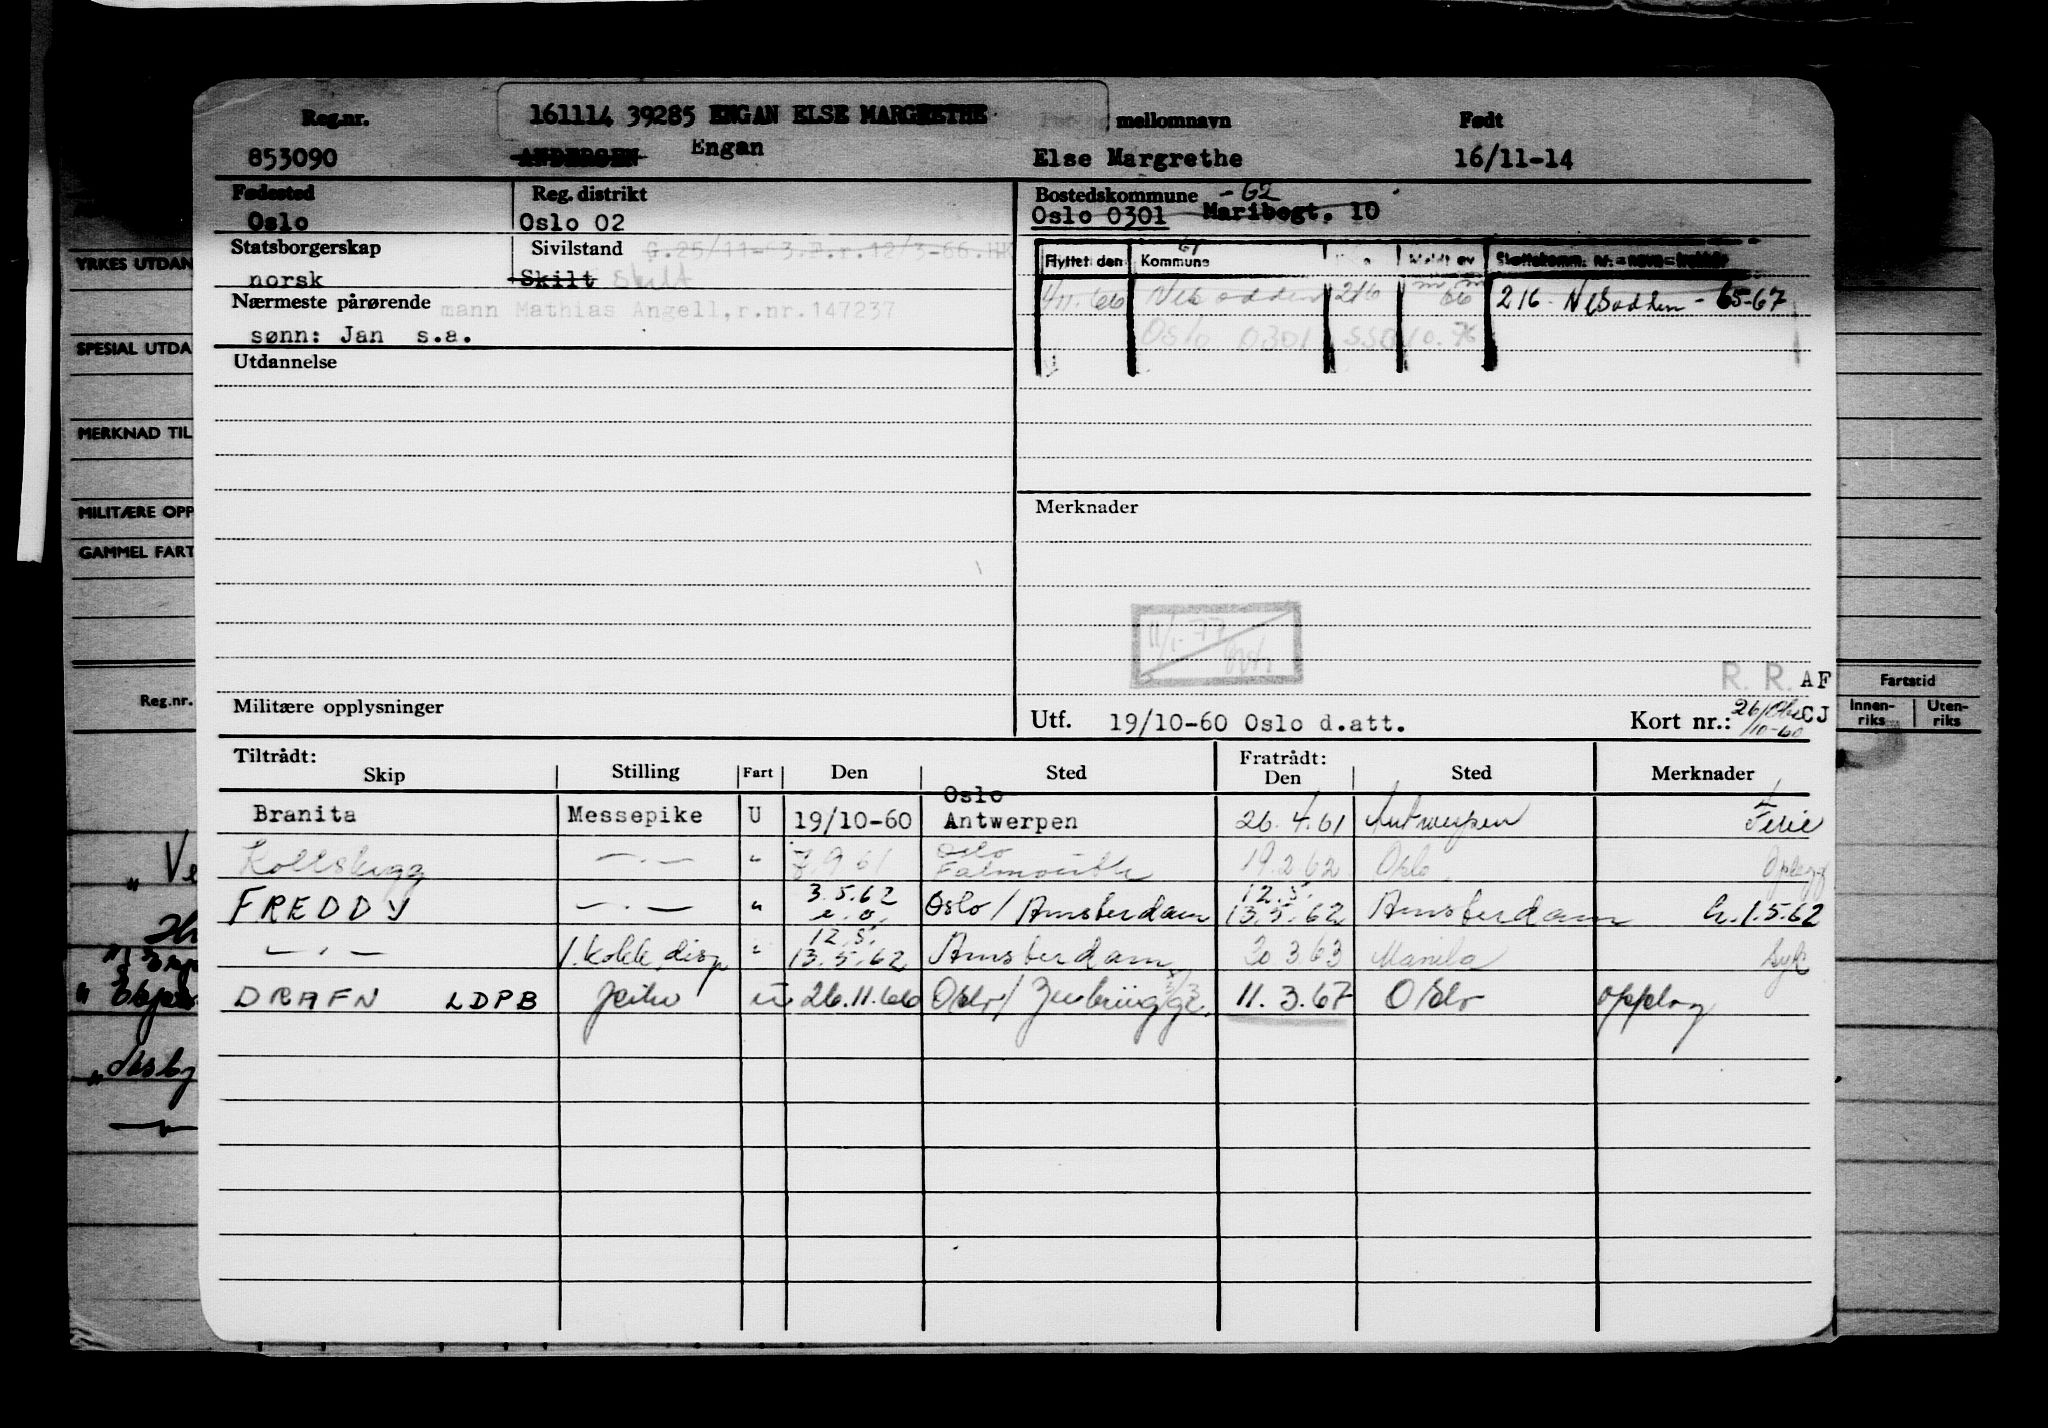 161114 39285 ENGAN ELSE MARGRETHE
Reg.nr. mellomnavn Født
853090 ANDERSEN Engan Else Margrethe 16/11-14
Fødested Reg. distrikt Bostedskommune - 62
Oslo Oslo 02 Oslo 0301 Maribogt. 10
Statsborgerskap Sivilstand
norsk Skilt skilt
Flyttet den Kommune
Nærmeste pårørende mann Mathias Angell, r.nr. 147237
sønn: Jan s.a.
216 66 216 - Nesodden - 65-67
Oslo 0301
Utdannelse
Merknader
YRKES UTDAN
SPESIAL UTDA
MERKNAD TIL
MILITÆRE OPP
GAMMEL FART
Reg.nr.
11/1-77
R. R. AF
Militære opplysninger
Utf. 19/10-60 Oslo d.att. Kort nr.: CJ
Fartstid
Innen-riks Uten-riks
Tiltrådt: Fratrådt:
Skip Stilling Fart Den Sted Den Sted Merknader
Branita Messepike U 19/10-60 Oslo Antwerpen 26.4.61 Antwerpen Ferie
" 9 61 Oslo Falmouth 19.2.62 Oslo
FREDDY — . — " 3.5.62 Oslo / Amsterdam 12.5. 13.5.62 Amsterdam 1.5.62
— . — 1. kokk disp " 12.5. 13.5.62 Amsterdam 20 3 63 Manila Syk
DRAFN LDPB u 26.11.66 Oslo / 11.3.67 Oslo opplag